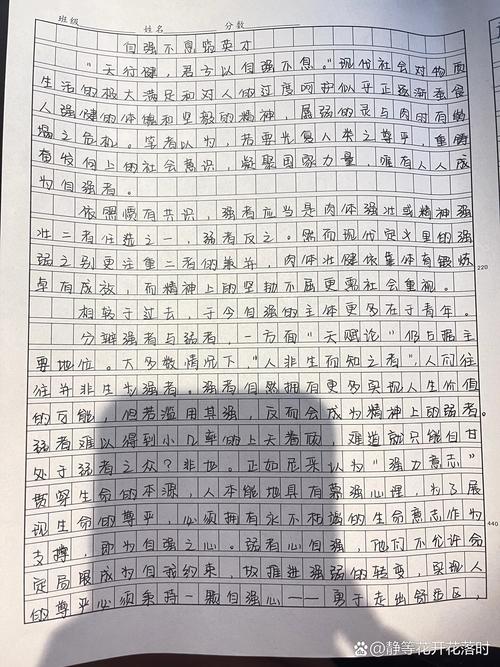 班级 姓名 分数
自强不息
"天行健，君子以自强不息。"现代社会对物质
生活的极大满足和对人的过度呵护似乎正逐渐蚕食
人强健的体魄和坚毅的精神，孱弱的灵与肉时有
塌之危机。笔者以为，若要光复人类之尊严，重铸
奋发向上的社会意识，凝聚国家力量，唯有人人成
为自强者。
依照惯有共识，强者应当是肉体强壮或精神强
壮二者任选之一，弱者反之。然而现代定义里的强
弱之别更注重二者的兼并，肉体壮健依靠体育锻炼
卓有成效，而精神上的坚韧不屈更需社会重视。
相较于过去，于今自强的主体更多在于青年。
220
分辨强者与弱者，一方面"天赋论"仍占据主
要地位。大多数情况下，"人非生而知之者"，人们往
往并非生为强者。强者自然拥有更多实现人生价值
的可能，但若滥用其强，反而会成为精神上的弱者。
弱者难以得到小几率的上天眷顾，难道就只能自甘
处于弱者之众？非也。正如尼采认为"强力意志"
贯穿生命的本源，人本能地具有慕强心理，为了展
现生命的尊严，必须拥有永不枯竭的生命意志作为
支撑，即为自强之心。弱者心自强，他们不允许命
440
定局限成为自我约束，故推进强弱的转变，实现人
的尊严必须秉持一颗自强心——勇于走出舒适区，
Bai百度 @静等花开花落时